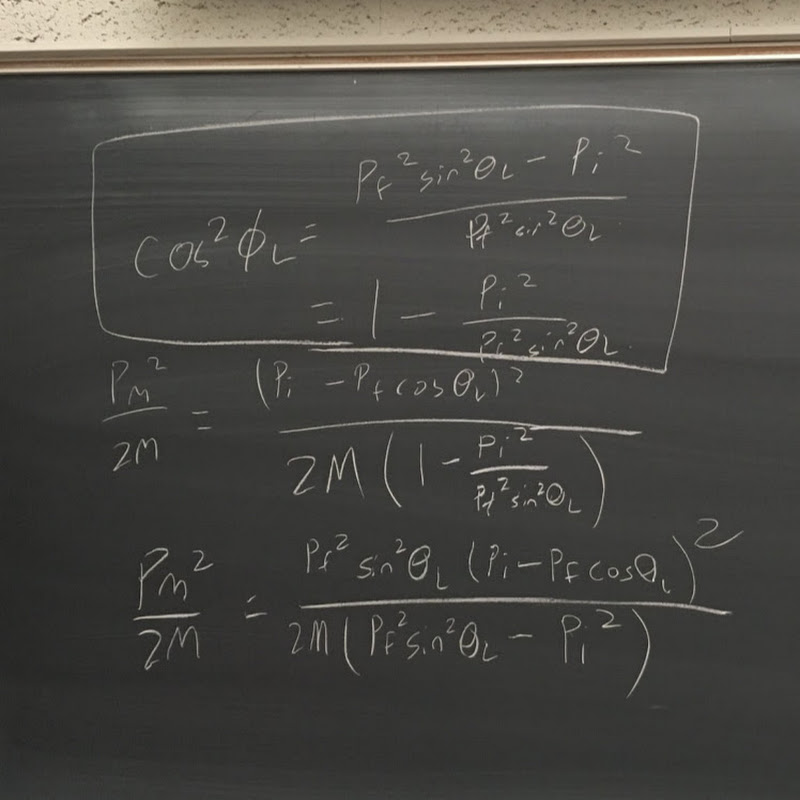 cos²ϕ_L = (P_f² sin²θ_L − P_i²) / (P_f² sin²θ_L)
= 1 − P_i² / (P_f² sin²θ_L)
P_M² / 2M = (P_i − P_f cosθ_L)² / (2M(1 − P_i² / (P_f² sin²θ_L)))
P_M² / 2M = P_f² sin²θ_L (P_i − P_f cosθ_L)² / (2M(P_f² sin²θ_L − P_i²))